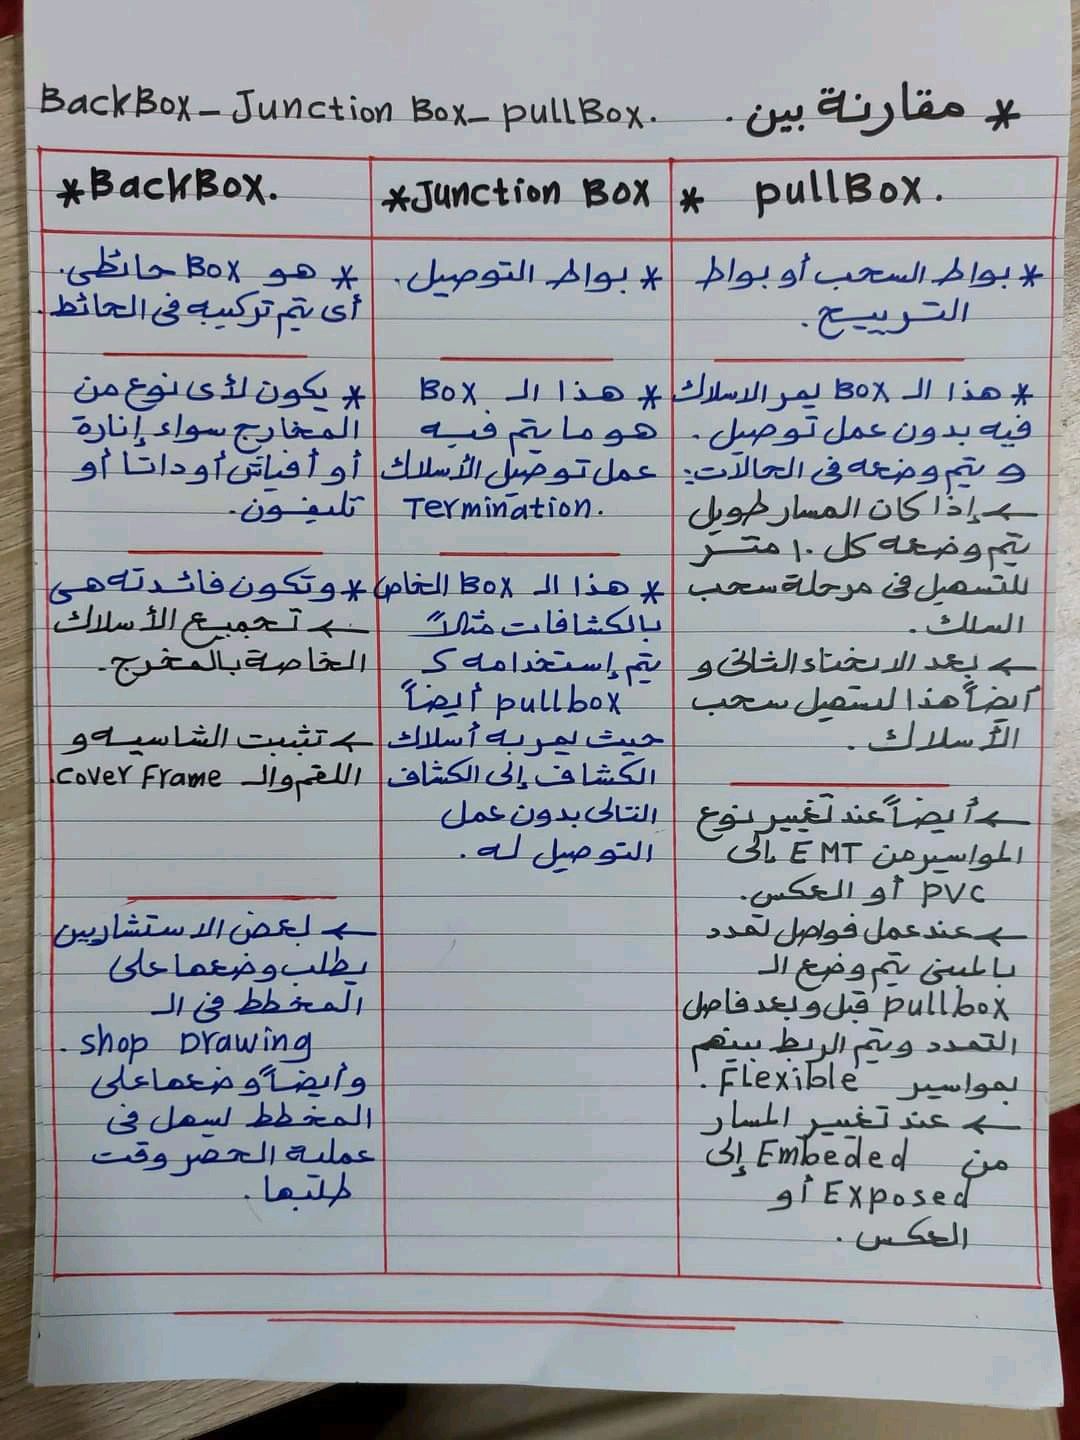 * مقارنة بين . BackBox - Junction Box - pullBox.
* pullBox.
* بواط السحب أو بواط
الترييح.
* هذا الـ Box يمر الاسلاك
فيه بدون عمل توصيل .
و يتم وضعه فى الحالات:
← إذا كان المسار طويل
يتم وضعه كل ١٠ متر
للتسهيل فى مرحلة سحب
السلك .
← بعد الانحناء الثانى و
أيضاً هذا لتسهيل سحب
الأسلاك .
← أيضاً عند تغيير نوع
المواسير من EMT إلى
PVC أو العكس.
← عند عمل فواصل تمدد
بالمبنى يتم وضع الـ
pullbox قبل و بعد فاصل
التمدد ويتم الربط بينهم
بمواسير Flexible .
← عند تغيير المسار
من Embeded إلى
Exposed أو
العكس .
* Junction Box
* بواط التوصيل .
* هذا الـ Box
هو ما يتم فيه
عمل توصيل الأسلاك
Termination.
* هذا الـ Box الخاص
بالكشافات مثلاً
يتم إستخدامه كـ
pullbox أيضاً
حيث يمر به أسلاك
الكشاف إلى الكشاف
التالى بدون عمل
التوصيل له .
* BackBox.
* هو Box حائطى.
أى يتم تركيبه فى الحائط .
* يكون لأى نوع من
المخارج سواء إنارة
أو أفياش أو داتا أو
تليفون.
* وتكون فائدته هى
← تجميع الأسلاك
الخاصة بالمخرج.
← تثبيت الشاسيه و
اللقم والـ cover Frame.
← لبعض الاستشاريين
يطلب وضعها على
المخطط فى الـ
shop Drawing .
وأيضاً وضعها على
المخطط ليسهل فى
عملية الحصر وقت
طلبها .